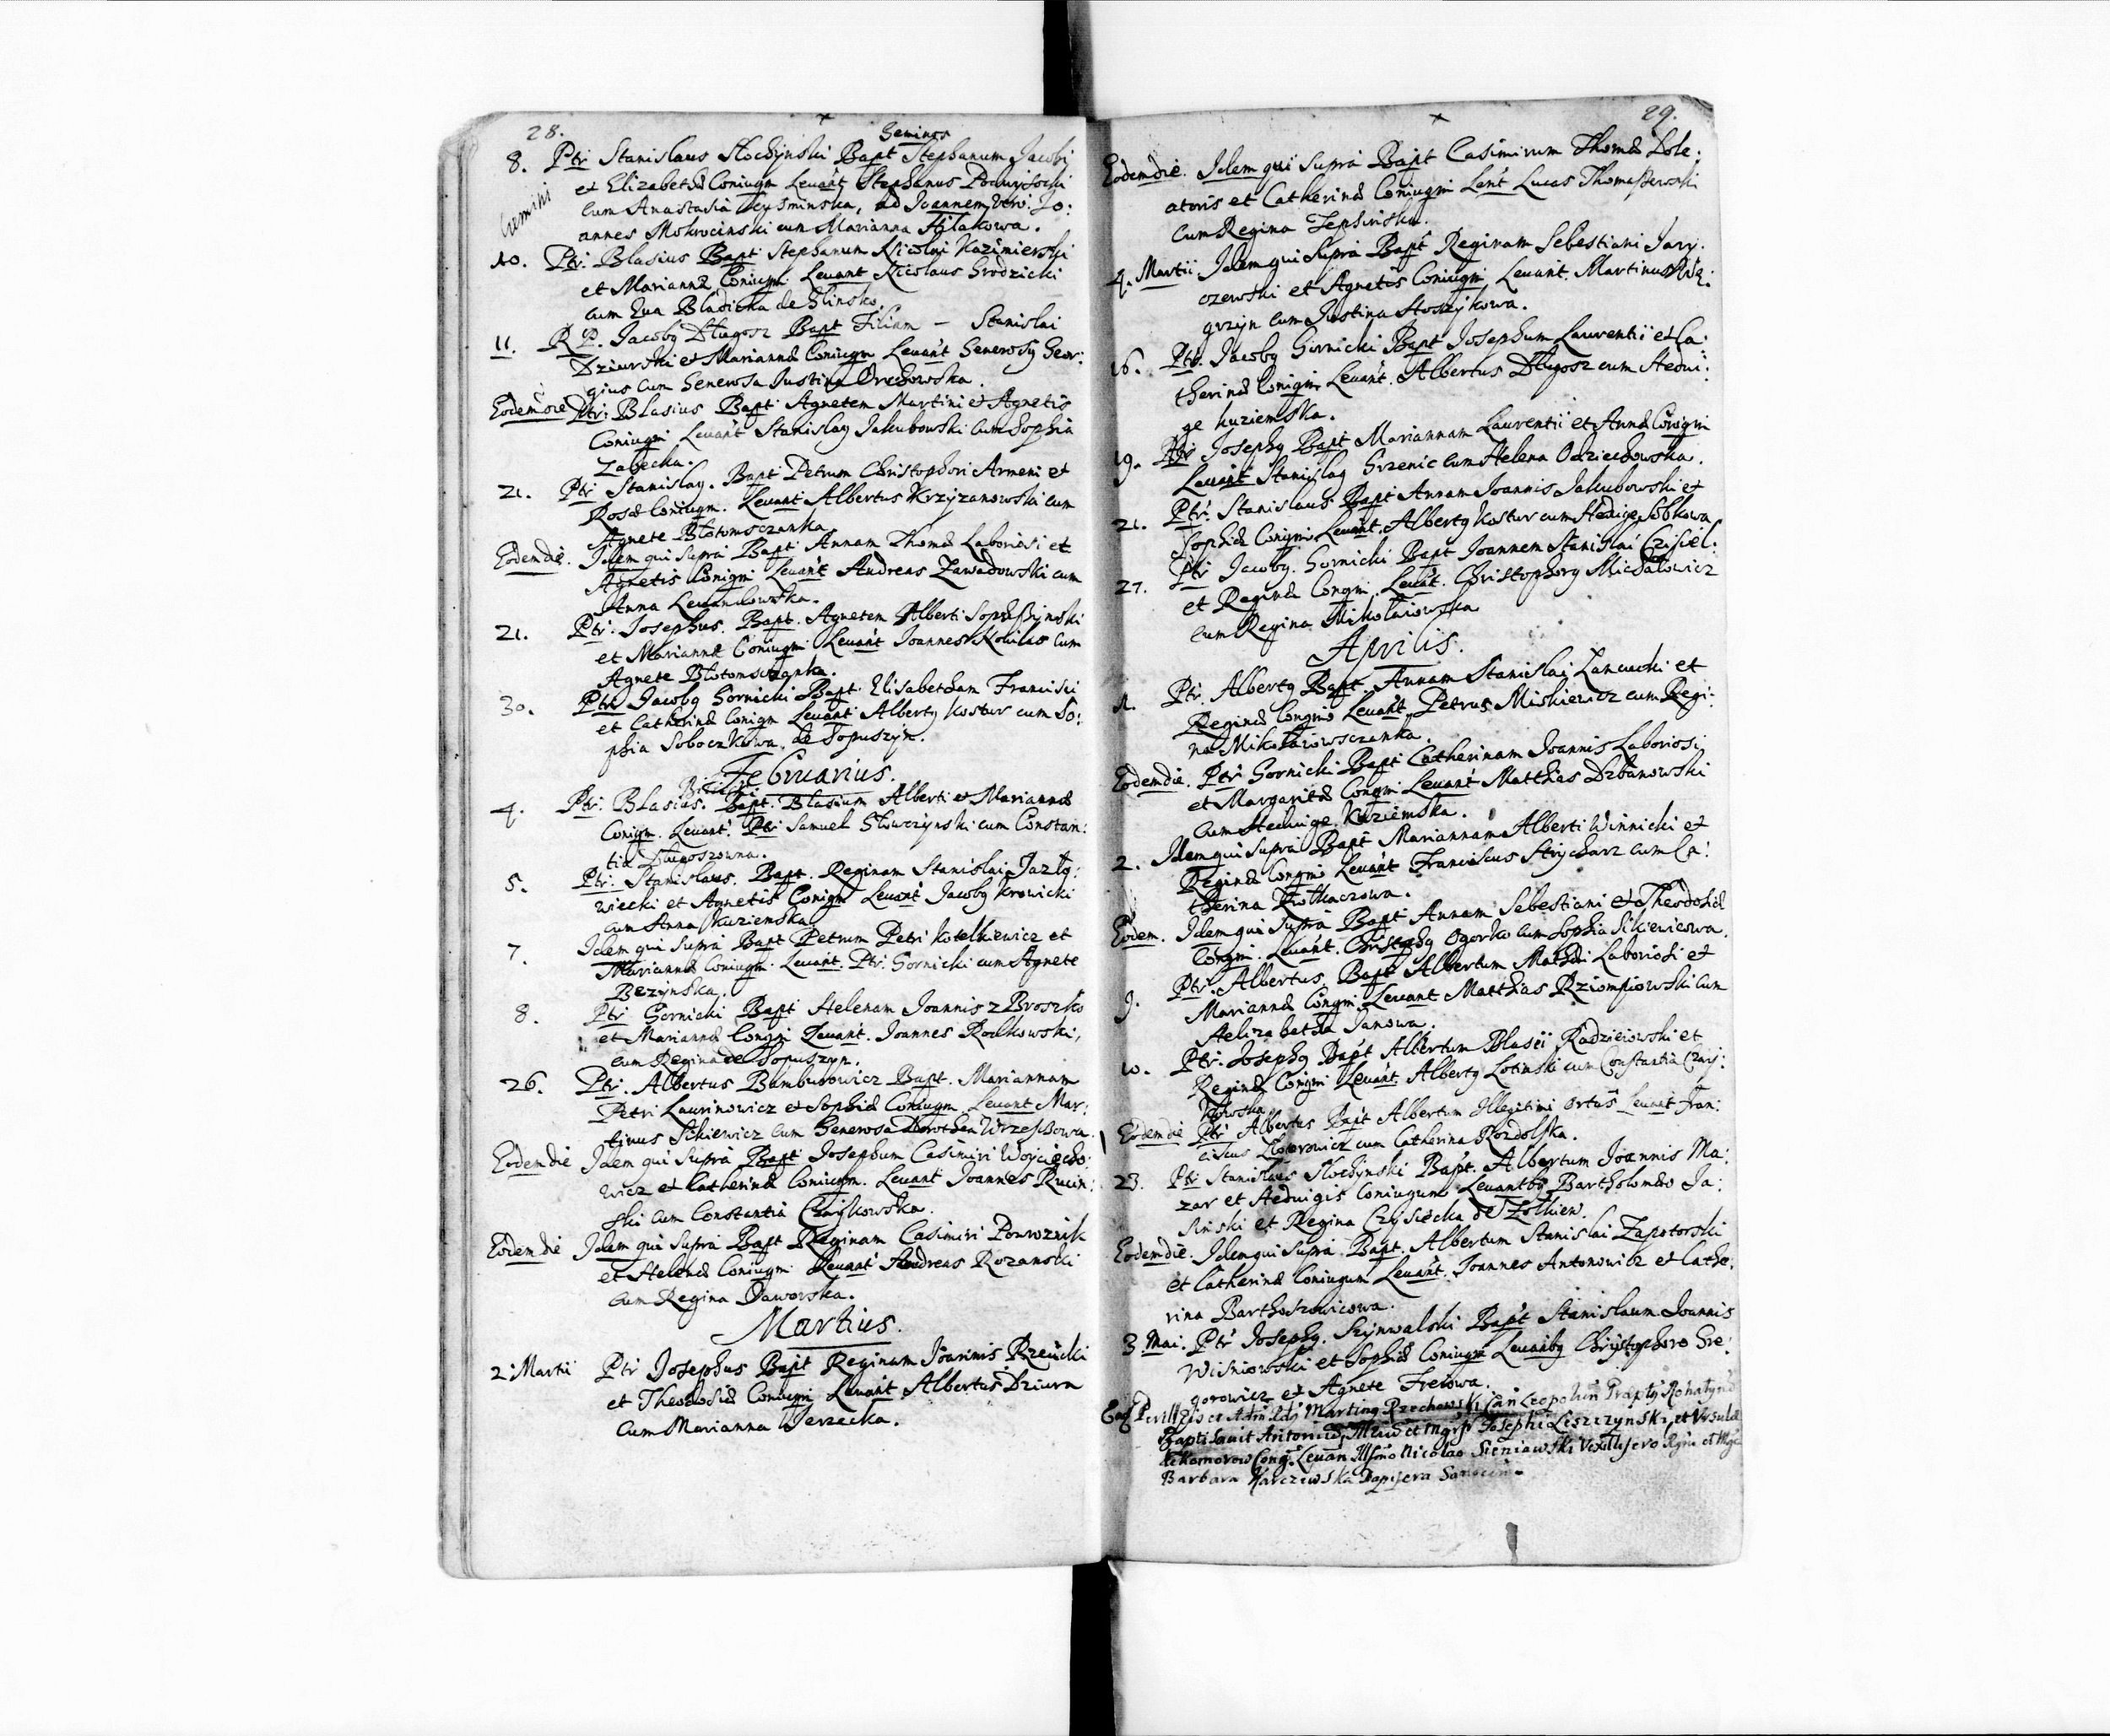 28.
Geminos
8. Ptr Stanislaus Stochynski Bapt Stephanum Jacobi
et Elizabethæ Coniugm Levant Stephanus
Gemini
cum Anastasia, ad Joannem vero: Jo:
annes Mokrocinski cum Marianna Hilakowa.
10. Ptr: Blasius Bapt Stephanum Nicolai Kazimierski
et Mariannæ Coniugm Levant Nicolaus Grodzicki
cum Eva Bladicka de Glinsko.
11. R P. Jacobg Dlugosz Bapt Filiam – Stanislai
Dziurski et Mariannæ Coniugm Levant Generosg Geor:
gius cum Generosa Justina Orechowska.
Eodem die Ptr: Blasius Bapt Agnetem Martini et Agnetis
Coniugm Levant Stanislag Jakubowski cum Sophia
Zabecka.
21. Ptr Stanislag. Bapt Petrum Christophori Armeni et
Rosæ Coniugm. Levant Albertus Krzyzanowski cum
Agnete Blotomsczanka
Eodem die. Idem qui supra Bapt Annam Thomæ Laboriosi et
Agnetis Conigm Levant Andreas Zawadowski cum
Anna Lewandowska.
21. Ptr: Josephus. Bapt. Agnetem Alberti
et Mariannæ Coniugm Levant Joannes cum
Agnete Blotomsczanka.
30. Ptr Jacobg Gornicki Bapt Elisabetham Francisci
et Catherinæ Conigm Levant Albertg Kostur cum So:
phia Soboczkowa de Sopuszyn.
Februarius.
4. Ptr: Blasius. Bapt. Blasium Alberti et Mariannæ
Conigm. Levant. Ptr Samuel Slowczynski cum Constan:
tia Dlugoszowna.
5. Ptr: Stanislaus. Bapt. Reginam Stanislai Jazlo:
wiecki et Agnetis Conigm Levant Jacobg Krowicki
cum Anna Kuziemska
7. Idem qui supra Bapt Petrum Petri Kotelkiewicz et
Mariannæ Coniugm. Levant. Ptr. Gornicki cum Agnete
Bezynska.
8. Ptr Gornicki Bapt Helenam Joannis z Broszko
et Mariannæ Congm Levant. Joannes Rolkowski,
cum Regina de Sopuszyn.
26. Ptr. Albertus Bamburowicz Bapt. Mariannam
Petri Laurinowicz et Sophiæ Coniugm. Levant Mar:
tinus Sikiewicz cum Generosa Dorothea
Eodem die Idem qui supra Bapt Josephum Casimiri Wojciecho:
wicz et Catherinæ Coniugm. Levant Joannes Rucin:
ski cum Constantia Czaykowska.
Eodem die Idem qui supra Bapt Reginam Casimiri Powoznik
et Helenæ Coniugm Levant Andreas Rozanski
cum Regina Daworska.
Martius.
2. Martii Ptr Josephus Bapt Reginam Joannis Rzewicki
et Theodosiæ Coniugm Levant Albertus Dziura
cum Marianna Jerzecka.
29.
Eodem die. Idem qui supra Bapt Casimirum Thomæ Dole:
atoris et Catherinæ Coniugm Levnt Lucas Thomaszewski
cum Regina
4. Martii Idem qui supra Bapt Reginam Sebestiani Jary:
czewski et Agnetis Coniugm Levant. Martinus
grzyn cum Justina Stoszykowa.
16. Ptr. Jacobg Gornicki Bapt Josephum Laurentii et Ca:
therinæ Conigm Levant. Albertus Dlugosz cum Hedvi:
ge Kuziemska.
19. Ptr Josephg Bapt Mariannam Laurentii et Annæ Conigm
Levant Stanislag Grzenic cum Helena Odziechowska.
21. Ptr: Stanislaus Bapt Annam Joannis Jakubowski et
Sophiæ Conigm Levant. Albertg Kostur cum Hedvige Sobkowa
27. Ptr Jacobg. Gornicki Bapt Joannem Stanislai
et Reginæ Congm. Levat. Christophorg Michalowicz
cum Regina Mikolaiowska
Aprilis.
1. Ptr. Albertg Bapt. Annam Stanislai Zancucki et
Reginæ Congm Levant. Petrus Miskiewicz cum Regi:
na Mikolaiowsczanka.
Eodem die. Ptr Gornicki Bapt Catherinam Joannis Laboriosi
et Margaritæ Congm Levant Matthias Dzbanowski
cum Hedvige Kuziemska.
2. Idem qui supra Bapt Mariannam Alberti Winnicki et
Reginæ Congm Levant Franciscus Strycharz cum Ca:
therina
Eodem. Idem qui supra Bapt Annam Sebestiani et Theodosiæ
Congm. Levant. Christophg Ogorko cum Sophia Sikiewicowa.
9. Ptr. Albertus Bapt Albertum Mathei Laboriosi et
Mariannæ Congm Levant Matthias cum
Helizabetha Janowa.
10. Ptr. Josephg Bapt Albertum Blasii Radzieiowski et
Reginæ Conigm Levant Albertg Lotinski cum Constantia Czay:
kowska.
Eodem die Ptr Albertus Bapt Albertum Illegitimi ortus Levant Fran:
ciscus cum Catherina Rozdolska.
23. Ptr Stanislaus Stochynski Bapt. Albertum Joannis Ma:
zar et Hedvigis Coniugum Levantbg Bartholomæo Ja:
sinski et Regina Czysiecka de Zolkiew.
Eodem die. Idem qui supra Bapt. Albertum Stanislai Zapotorski
et Catherinæ Coniugum Levant. Joannes Antonowicz et Cathe:
rina Barthoszowicowa.
3 Mai: Ptr Josephg. Szynwalski Bapt Stanislaum Joannis
Wisniowski et Sophiæ Coniugm Levantbg Christophoro Gre:
gorowicz et Agnete Frelowa.
Marting Rzechowski Can Leopolien Prapty Rohatyn
Baptisavit Antonium Josephi Leszczynski, et Ursulæ
Komorow Cong. Levan Illsmo Nicolao Sieniawski Vexillifero Rgni et
Barbara Karczewska Dapifera